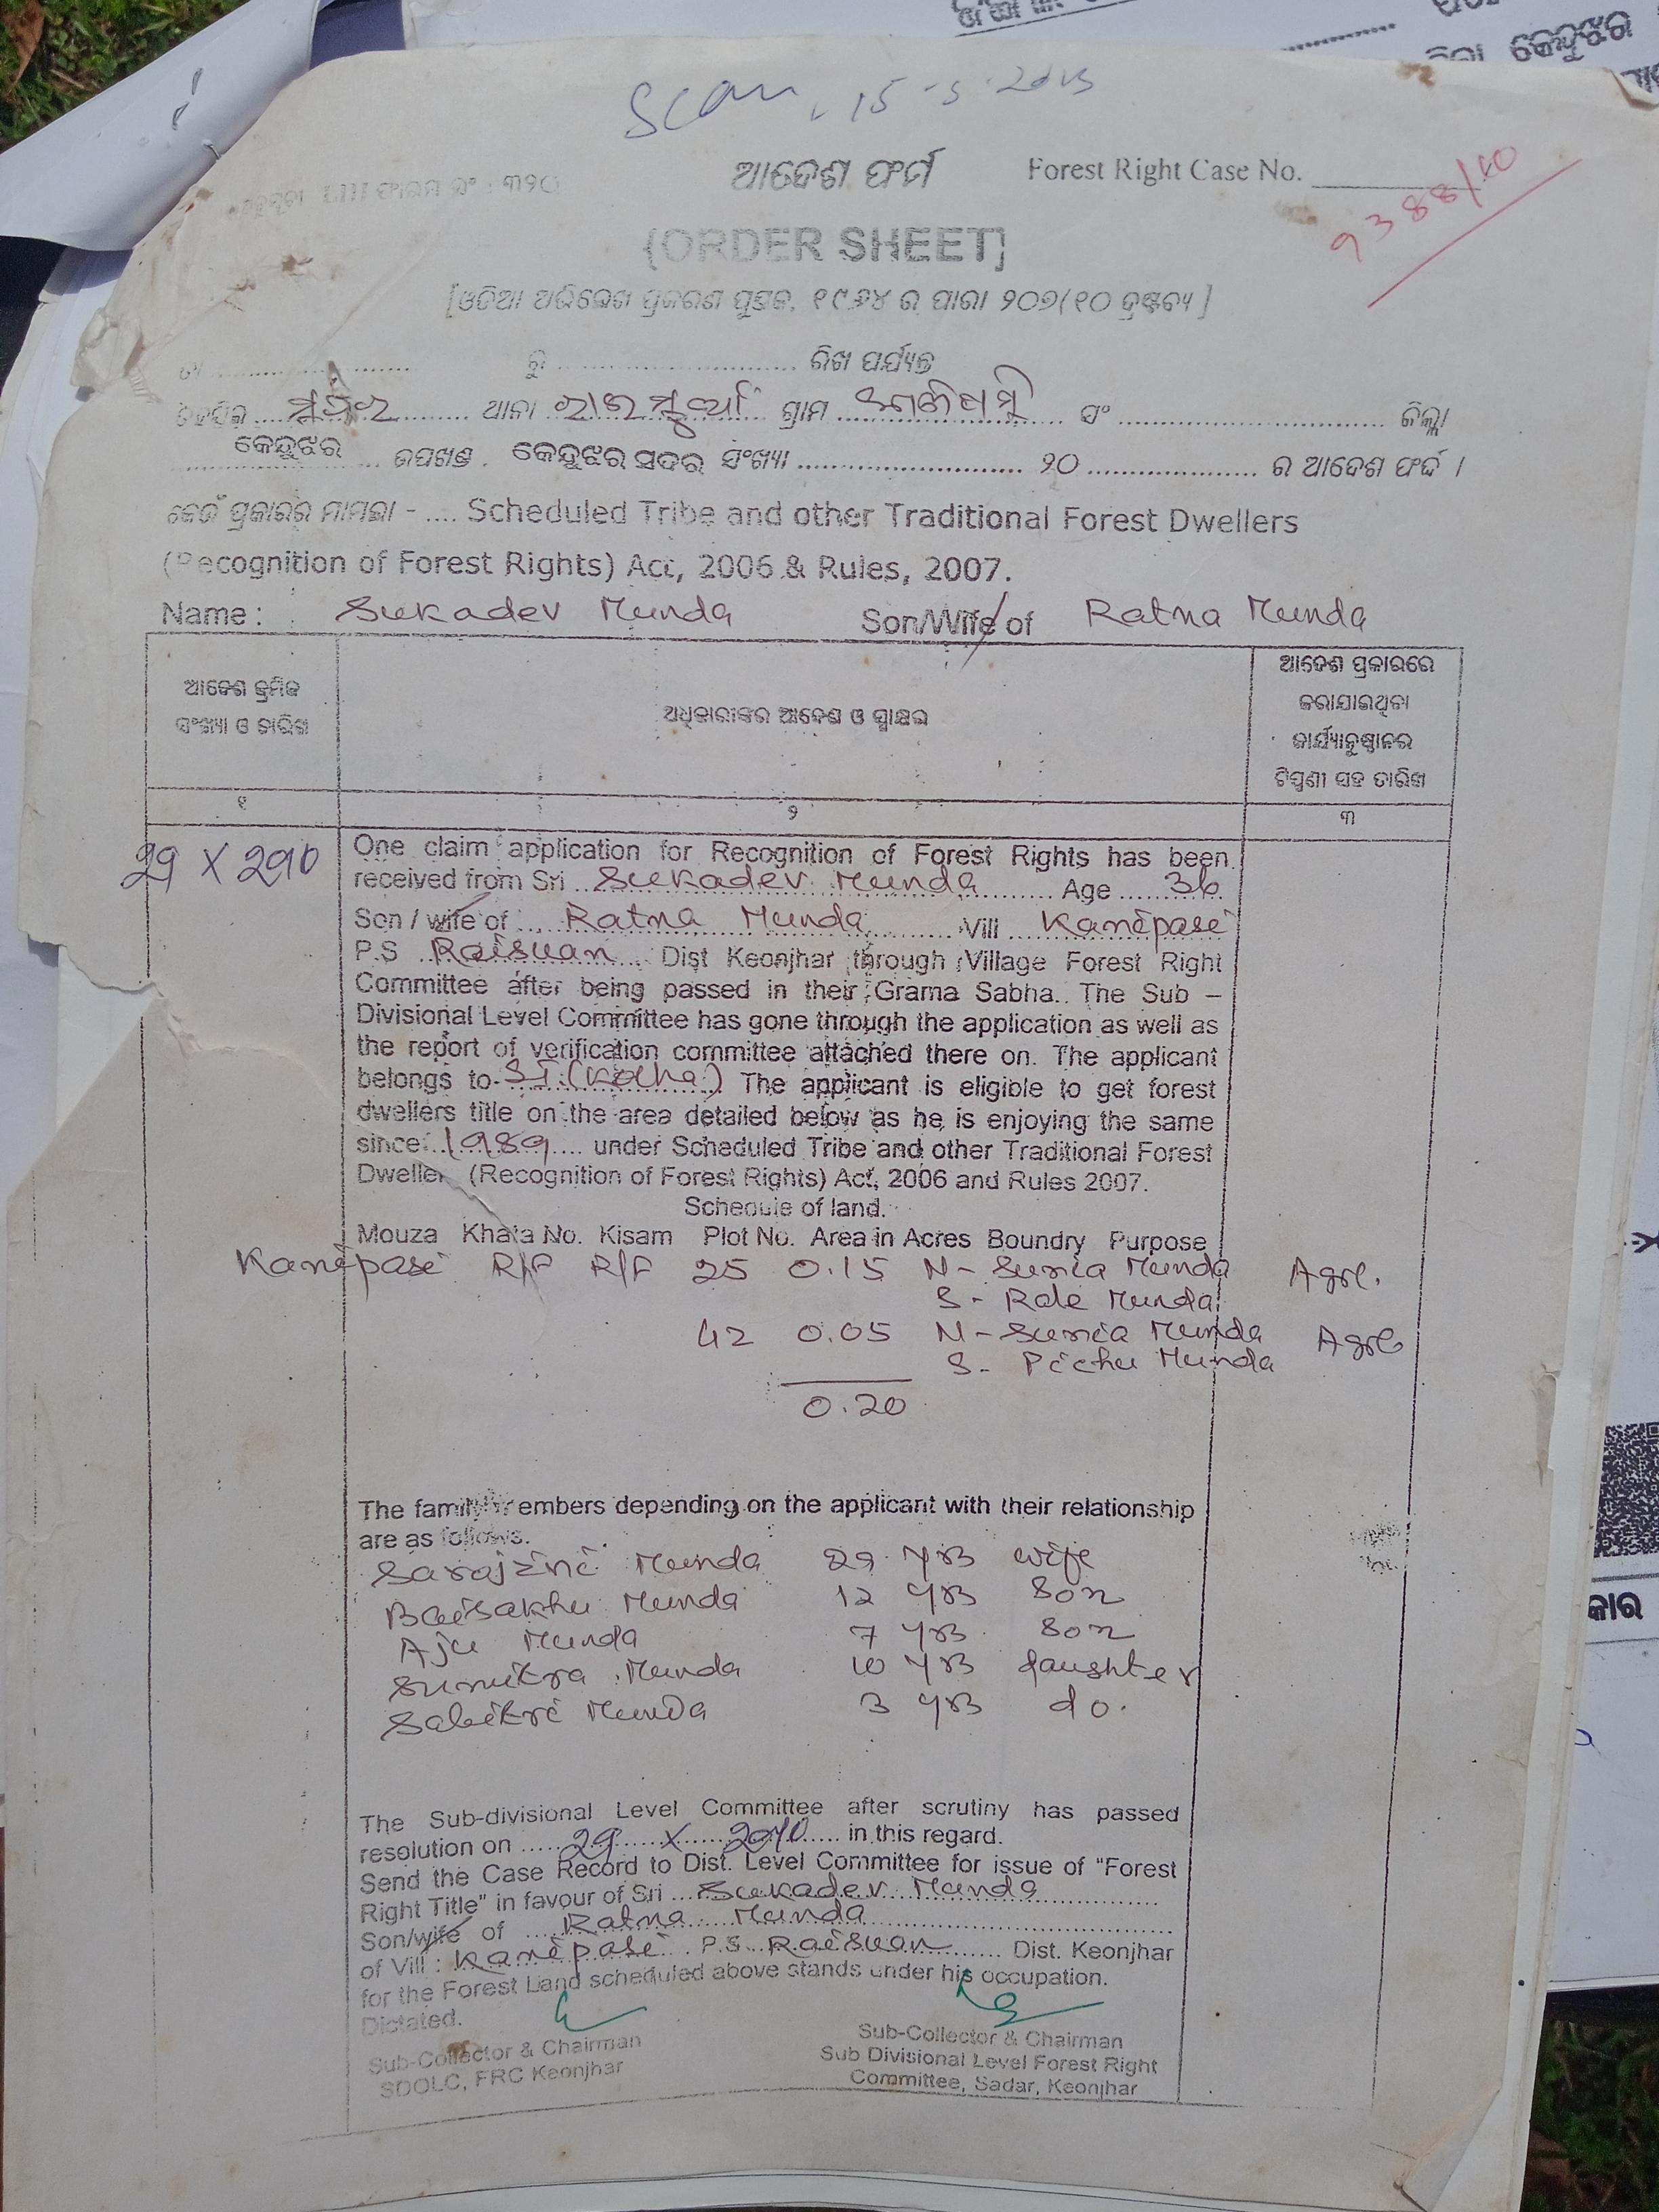 Scan, 15-5-2013
ଆଦେଶ ଫର୍ମ Forest Right Case No.
9388/10
ଫାରମ ନଂ : ୩୨୦
{ORDER SHEET]
[ଓଡିଆ ଅଭିଲେଖ ପ୍ରକରଣ ପୁସ୍ତକ, ୧୯୬୪ ର ପାରା ୨୦୭(୧୦ ଦ୍ରଷ୍ଟବ୍ୟ ]
ତା ..................... ରୁ ........................... ରିଖ ପର୍ଯ୍ୟନ୍ତ
ତହସିଲ ........... ଥାନା ........... ଗ୍ରାମ ........... ସଂ ........................... ଜିଲ୍ଲା
କେନ୍ଦୁଝର ... ଉପଖଣ୍ଡ . କେନ୍ଦୁଝର ସଦର ସଂଖ୍ୟା ......................... ୨୦ ................... ର ଆଦେଶ ଫର୍ଦ୍ଦ ।
କେଉଁ ପ୍ରକାରର ମାମଲା - .... Scheduled Tribe and other Traditional Forest Dwellers
(Recognition of Forest Rights) Act, 2006 & Rules, 2007.
Name : Sukadev Munda Son/Wife of Ratna Munda
ଆଦେଶ କ୍ରମିକ
ସଂଖ୍ୟା ଓ ତାରିଖ
ଅଧିକାରୀଙ୍କର ଆଦେଶ ଓ ସ୍ୱାକ୍ଷର
ଆଦେଶ ପ୍ରକାରରେ
କରାଯାଇଥିବା
କାର୍ଯ୍ୟାନୁଷ୍ଠାନର
ଟିପ୍ପଣୀ ସହ ତାରିଖ
୧ ୨ ୩
29 X 2010
One claim application for Recognition of Forest Rights has been
received from Sri ...Sukadev Munda......... Age ....36.
Son / wife of ..... Ratna Munda ........... Vill ... Kanipasi
P.S ..Raisuan.... Dist Keonjhar through Village Forest Right
Committee after being passed in their Grama Sabha.. The Sub –
Divisional Level Committee has gone through the application as well as
the report of verification committee attached there on. The applicant
belongs to- ST (Kolha) The applicant is eligible to get forest
dwellers title on the area detailed below as he is enjoying the same
since 1989.... under Scheduled Tribe and other Traditional Forest
Dweller (Recognition of Forest Rights) Act, 2006 and Rules 2007.
Schedule of land.
Mouza Khata No. Kisam Plot No. Area in Acres Boundry Purpose
Kanipasi R/F R/F 25 0.15 N- Suria Munda Agri.
S- Rale Munda
42 0.05 N- Suria Munda Agri
S- Pichu Munda
0.20
The family members depending on the applicant with their relationship
are as follows.
Sarajini Munda 29 yrs wife
Baisakhu Munda 12 yrs Son
Aju Munda 7 yrs Son
Sumitra Munda 10 yrs daughter
Sabitri Munda 3 yrs do.
The Sub-divisional Level Committee after scrutiny has passed
resolution on .....29 X 2010..... in this regard.
Send the Case Record to Dist. Level Committee for issue of "Forest
Right Title" in favour of Sri ...Sukadev Munda..............
Son/wife of ....Ratna Munda..............................
of Vill : Kanipasi P.S. Raisuan ...... Dist. Keonjhar
for the Forest Land scheduled above stands under his occupation.
Dictated.
Sub-Collector & Chairman
SDOLC, FRC Keonjhar
Sub-Collector & Chairman
Sub Divisional Level Forest Right
Committee, Sadar, Keonjhar